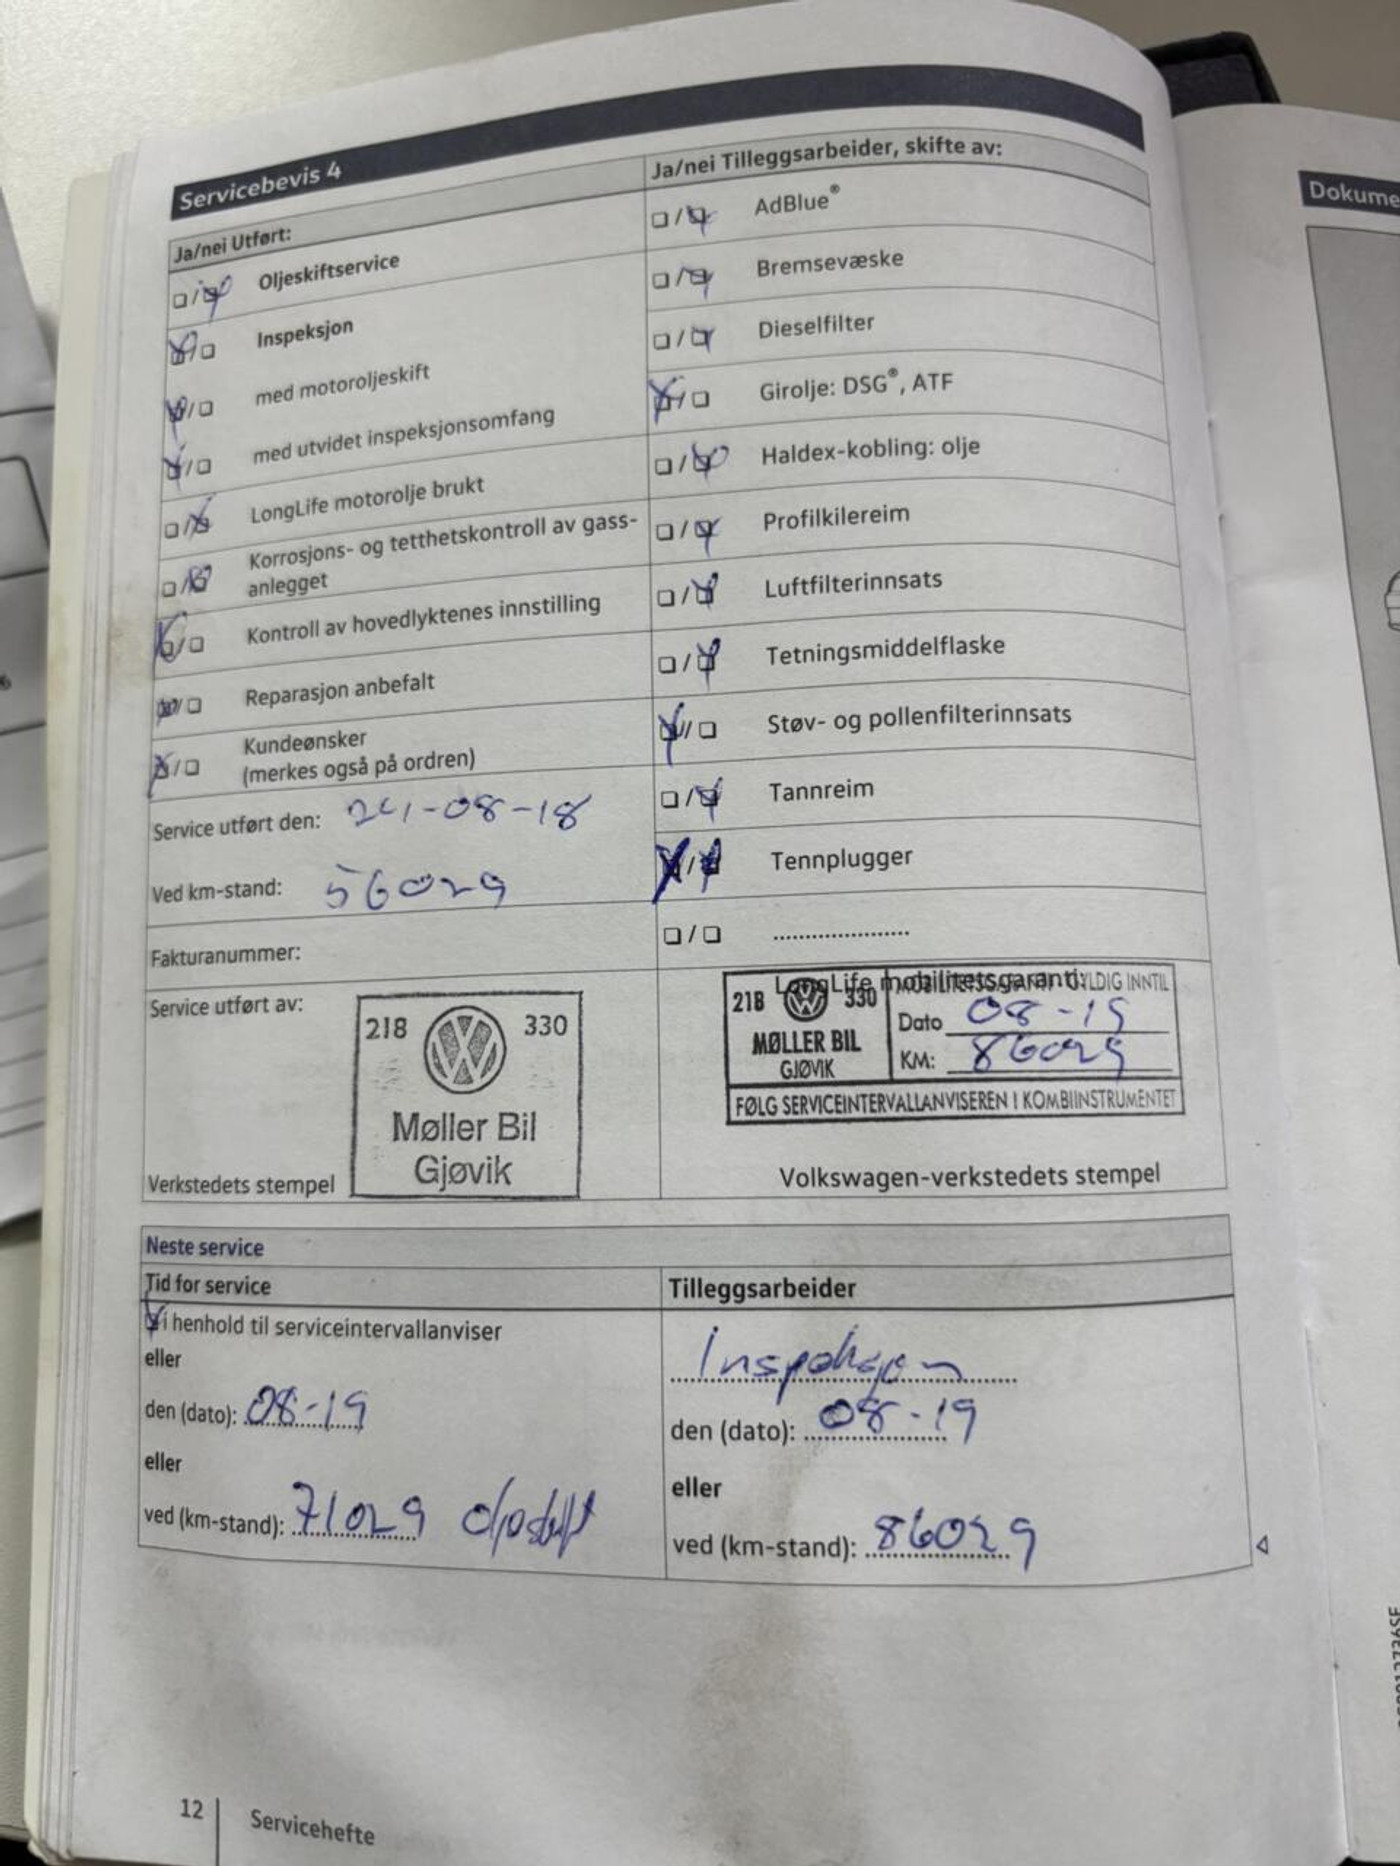 Servicebevis 4
Ja/nei Utført:
Oljeskiftservice
Inspeksjon
med motoroljeskift
med utvidet inspeksjonsomfang
LongLife motorolje brukt
Korrosjons- og tetthetskontroll av gass-
anlegget
Kontroll av hovedlyktenes innstilling
Reparasjon anbefalt
Kundeønsker
(merkes også på ordren)
Service utført den: 24-08-18
Ved km-stand: 56029
Fakturanummer:
Service utført av:
218 330
Møller Bil
Gjøvik
Verkstedets stempel
Ja/nei Tilleggsarbeider, skifte av:
AdBlue®
Bremsevæske
Dieselfilter
Girolje: DSG®, ATF
Haldex-kobling: olje
Profilkilereim
Luftfilterinnsats
Tetningsmiddelflaske
Støv- og pollenfilterinnsats
Tannreim
Tennplugger
LongLife mobilitetsgaranti:
GYLDIG INNTIL
218 330
MØLLER BIL
GJØVIK
Dato 08-19
KM: 86029
FØLG SERVICEINTERVALLANVISEREN I KOMBIINSTRUMENTET
Volkswagen-verkstedets stempel
Neste service
Tid for service
i henhold til serviceintervallanviser
eller
den (dato): 08-19
eller
ved (km-stand): 71029
Tilleggsarbeider
Inspeksjon
den (dato): 08-19
eller
ved (km-stand): 86029
12 Servicehefte
Dokume